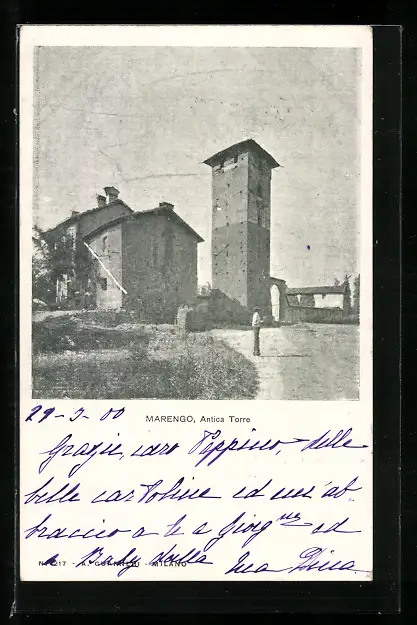 29-3-00
MARENGO, Antica Torre
Grazie, caro Pippino, delle
belle cartoline ed un' ab-
braccio a te a Giorg^ne ed
a Baby dalla tua Dina.
MILANO